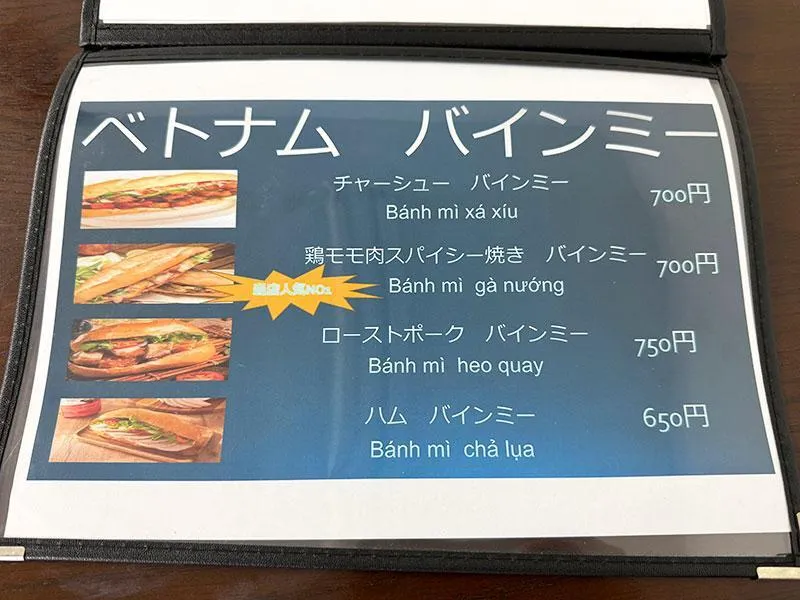 ベトナム　バインミー
チャーシュー　バインミー
Bánh mì xá xíu
700円
鶏モモ肉スパイシー焼き　バインミー
Bánh mì gà nướng
700円
当店人気NO1
ローストポーク　バインミー
Bánh mì heo quay
750円
ハム　バインミー
Bánh mì chả lụa
650円